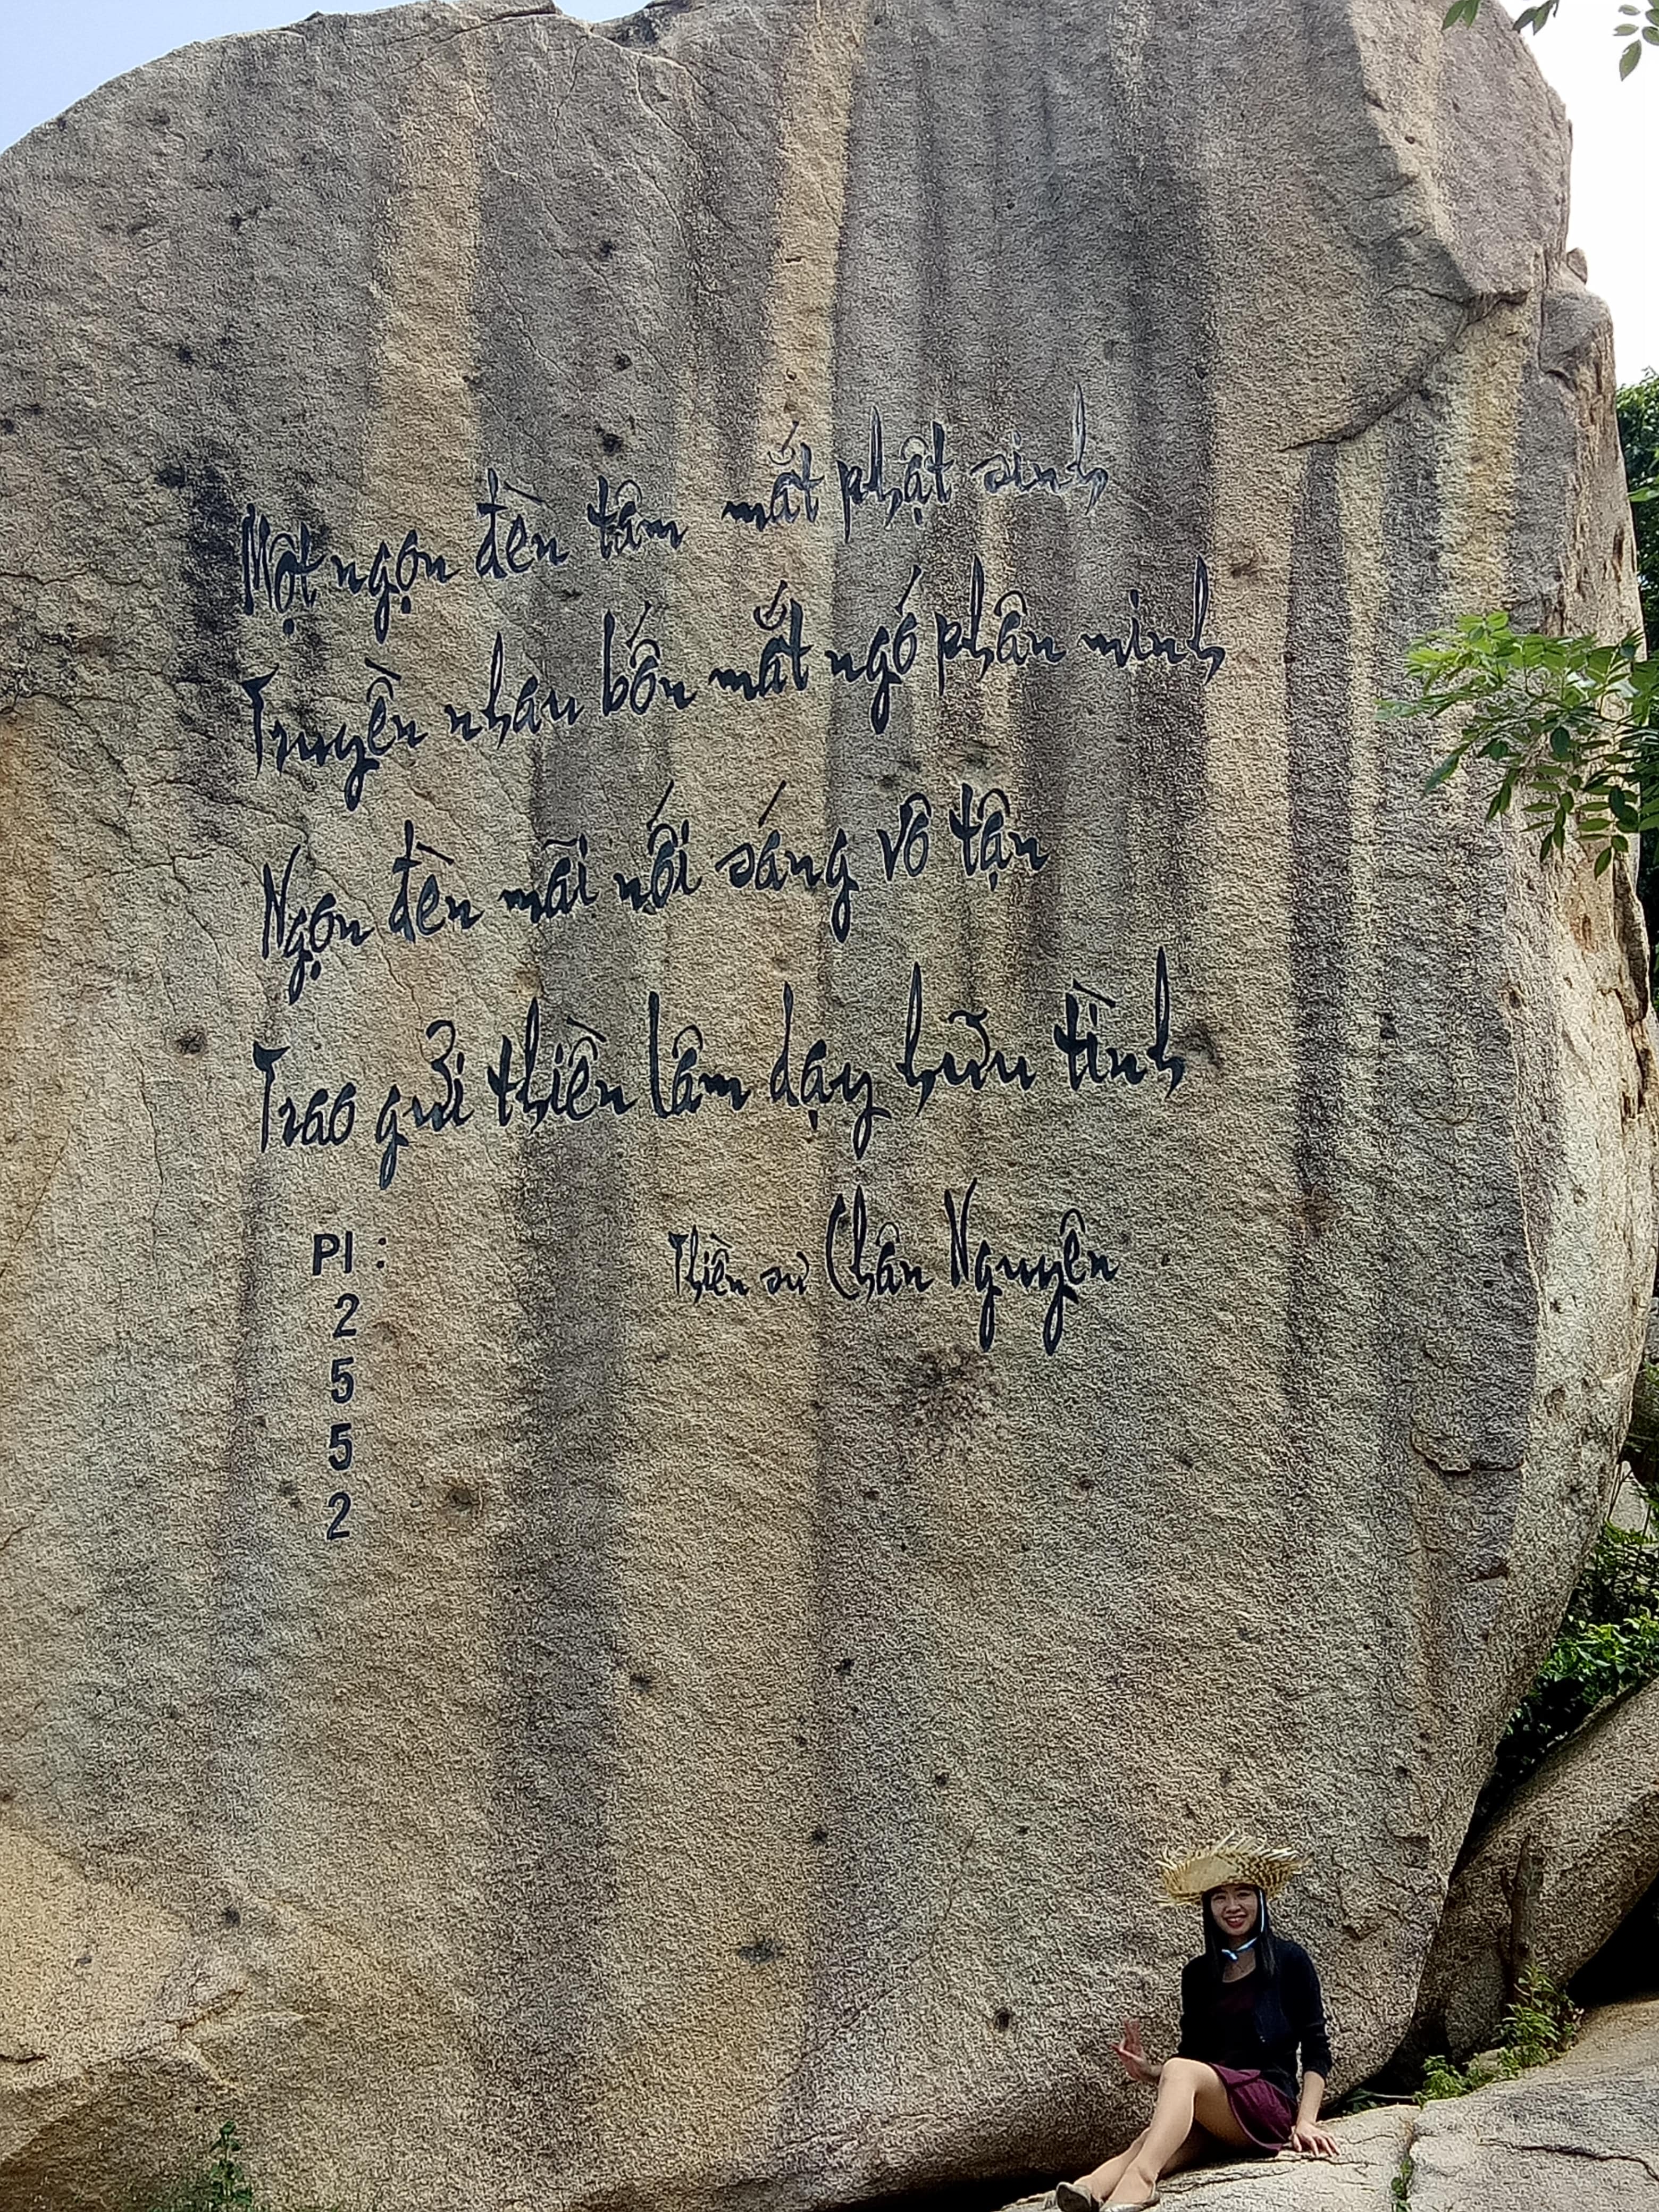 Một ngọn đèn tâm mắt phật sinh
Truyền nhau bốn mắt ngó phân minh
Ngọn đèn mãi nối sáng vô tận
Trao gửi thiền lâm dạy hữu tình
Thiền sư Chân Nguyên
PI :
2
5
5
2